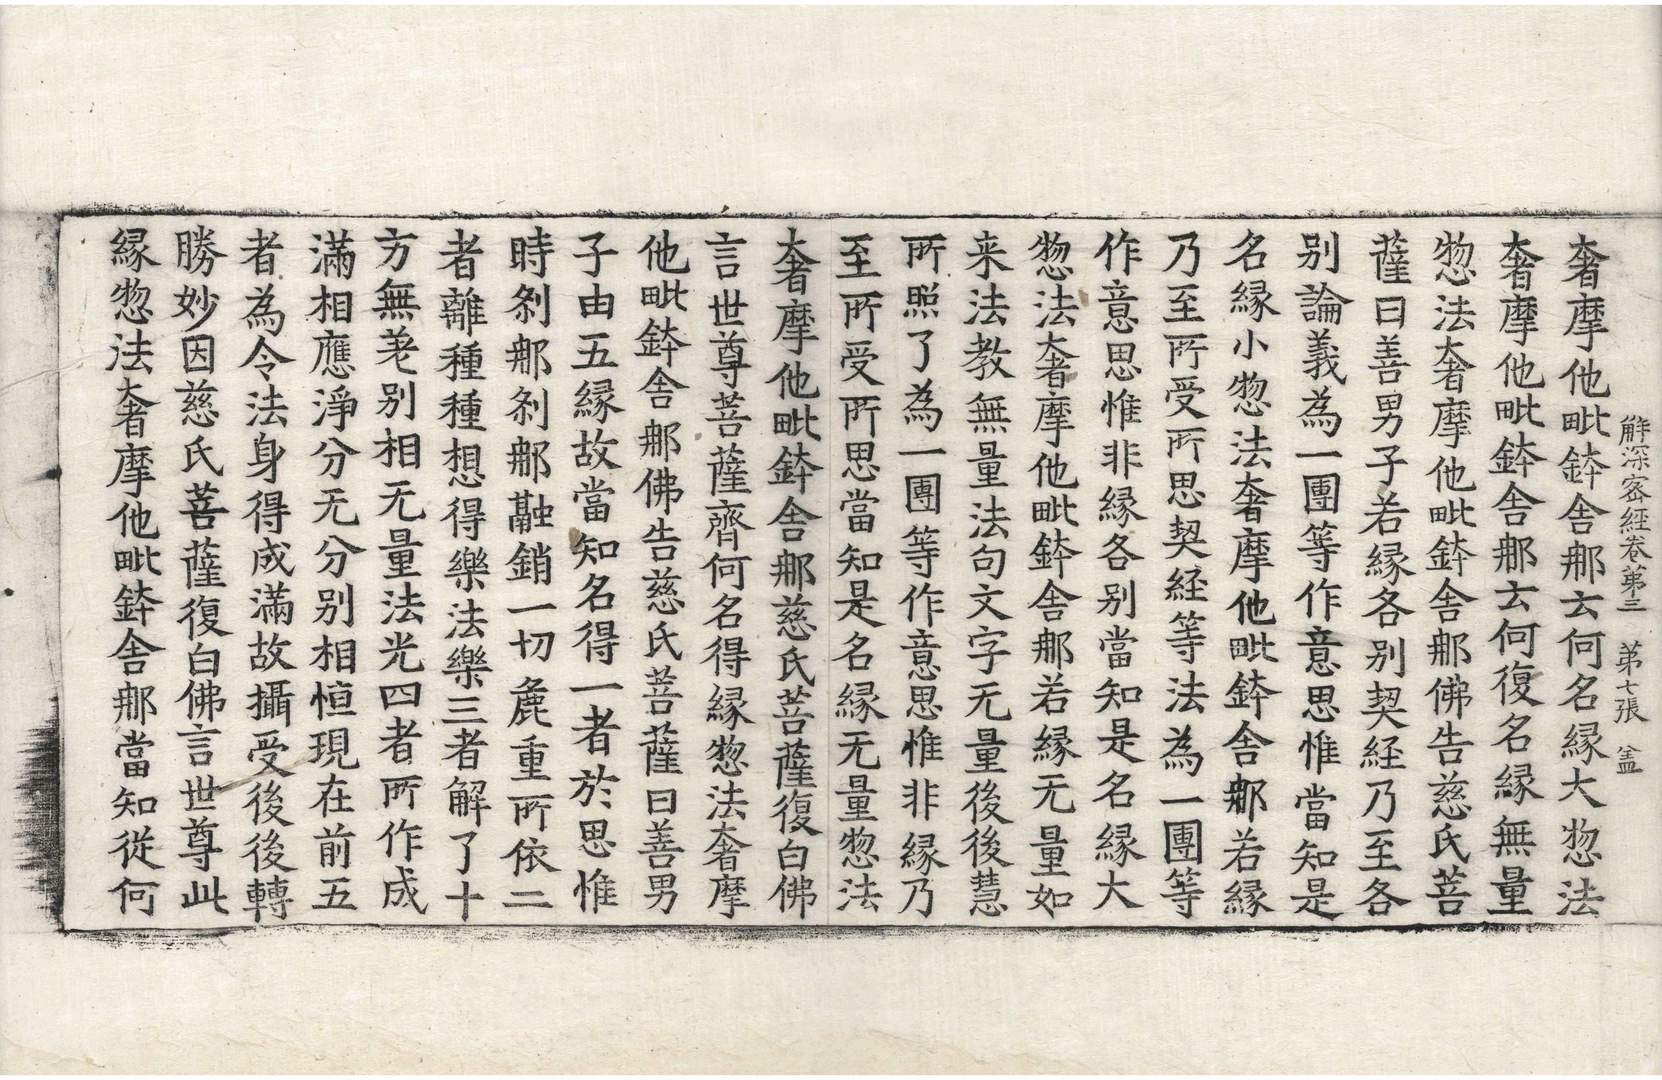 解深密經卷第三　第七張　盖
奢摩他毗鉢舍那云何名縁大惣法
奢摩他毗鉢舍那云何復名縁無量
惣法奢摩他毗鉢舍那佛告慈氏菩
薩曰善男子若縁各別契経乃至各
別論義為一團等作意思惟當知是
名縁小惣法奢摩他毗鉢舍那若縁
乃至所受所思契経等法為一團等
作意思惟非縁各別當知是名縁大
惣法奢摩他毗鉢舍那若縁无量如
来法教無量法句文字无量後後慧
所照了為一團等作意思惟非縁乃
至所受所思當知是名縁无量惣法
奢摩他毗鉢舍那慈氏菩薩復白佛
言世尊菩薩齊何名得縁惣法奢摩
他毗鉢舍那佛告慈氏菩薩曰善男
子由五縁故當知名得一者於思惟
時刹那刹那融銷一切麁重所依二
者離種種想得樂法樂三者解了十
方無差別相无量法光四者所作成
滿相應淨分无分別相恒現在前五
者為令法身得成滿故攝受後後轉
勝妙因慈氏菩薩復白佛言世尊此
縁惣法奢摩他毗鉢舍那當知從何